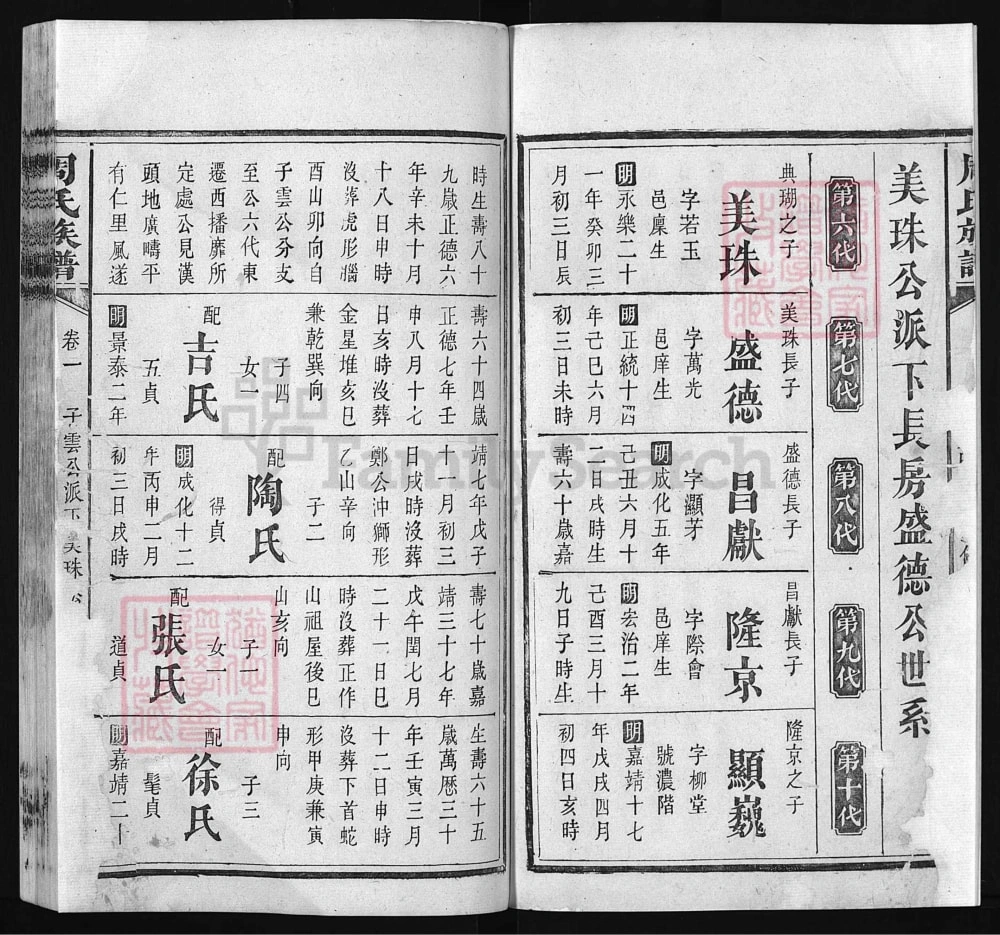 美珠公派下長房盛德公世系
第六代
典瑚之子
美珠
字若玉
邑廩生
明永樂二十
一年癸卯三
月初三日辰
時生壽八十
九歲正德六
年辛未十月
十八日申時
沒葬虎形腦
酉山卯向自
子雲公分支
至公六代東
遷西播靡所
定處公見漢
頭地廣疇平
有仁里風遂
第七代
美珠長子
盛德
字萬光
邑庠生
明正統十四
年己巳六月
初三日未時
壽六十四歲
正德七年壬
申八月十七
日亥時沒葬
金星堆亥巳
兼乾巽向
子四
女一
配
吉氏
五貞
明景泰二年
第八代
盛德長子
昌獻
字灝芽
明成化五年
己丑六月十
二日戌時生
壽六十歲嘉
靖七年戊子
十一月初三
日戌時沒葬
鄭公沖獅形
乙山辛向
子二
配
陶氏
得貞
明成化十二
年丙申二月
初三日戌時
第九代
昌獻長子
隆京
字際會
邑庠生
明宏治二年
己酉三月十
九日子時生
壽七十歲嘉
靖三十七年
戊午閏七月
二十一日巳
時沒葬正作
山祖屋後巳
山亥向
子一
女
配
張氏
道貞
第十代
隆京之子
顯巍
字柳堂
號濃階
明嘉靖十七
年戊戌四月
初四日亥時
生壽六十五
歲萬曆三十
年壬寅三月
十二日申時
沒葬下首蛇
形甲庚兼寅
申向
子三
配
徐氏
髦貞
明嘉靖二十
周氏族譜
卷一
子雲公派下
美珠公
FamilySearch